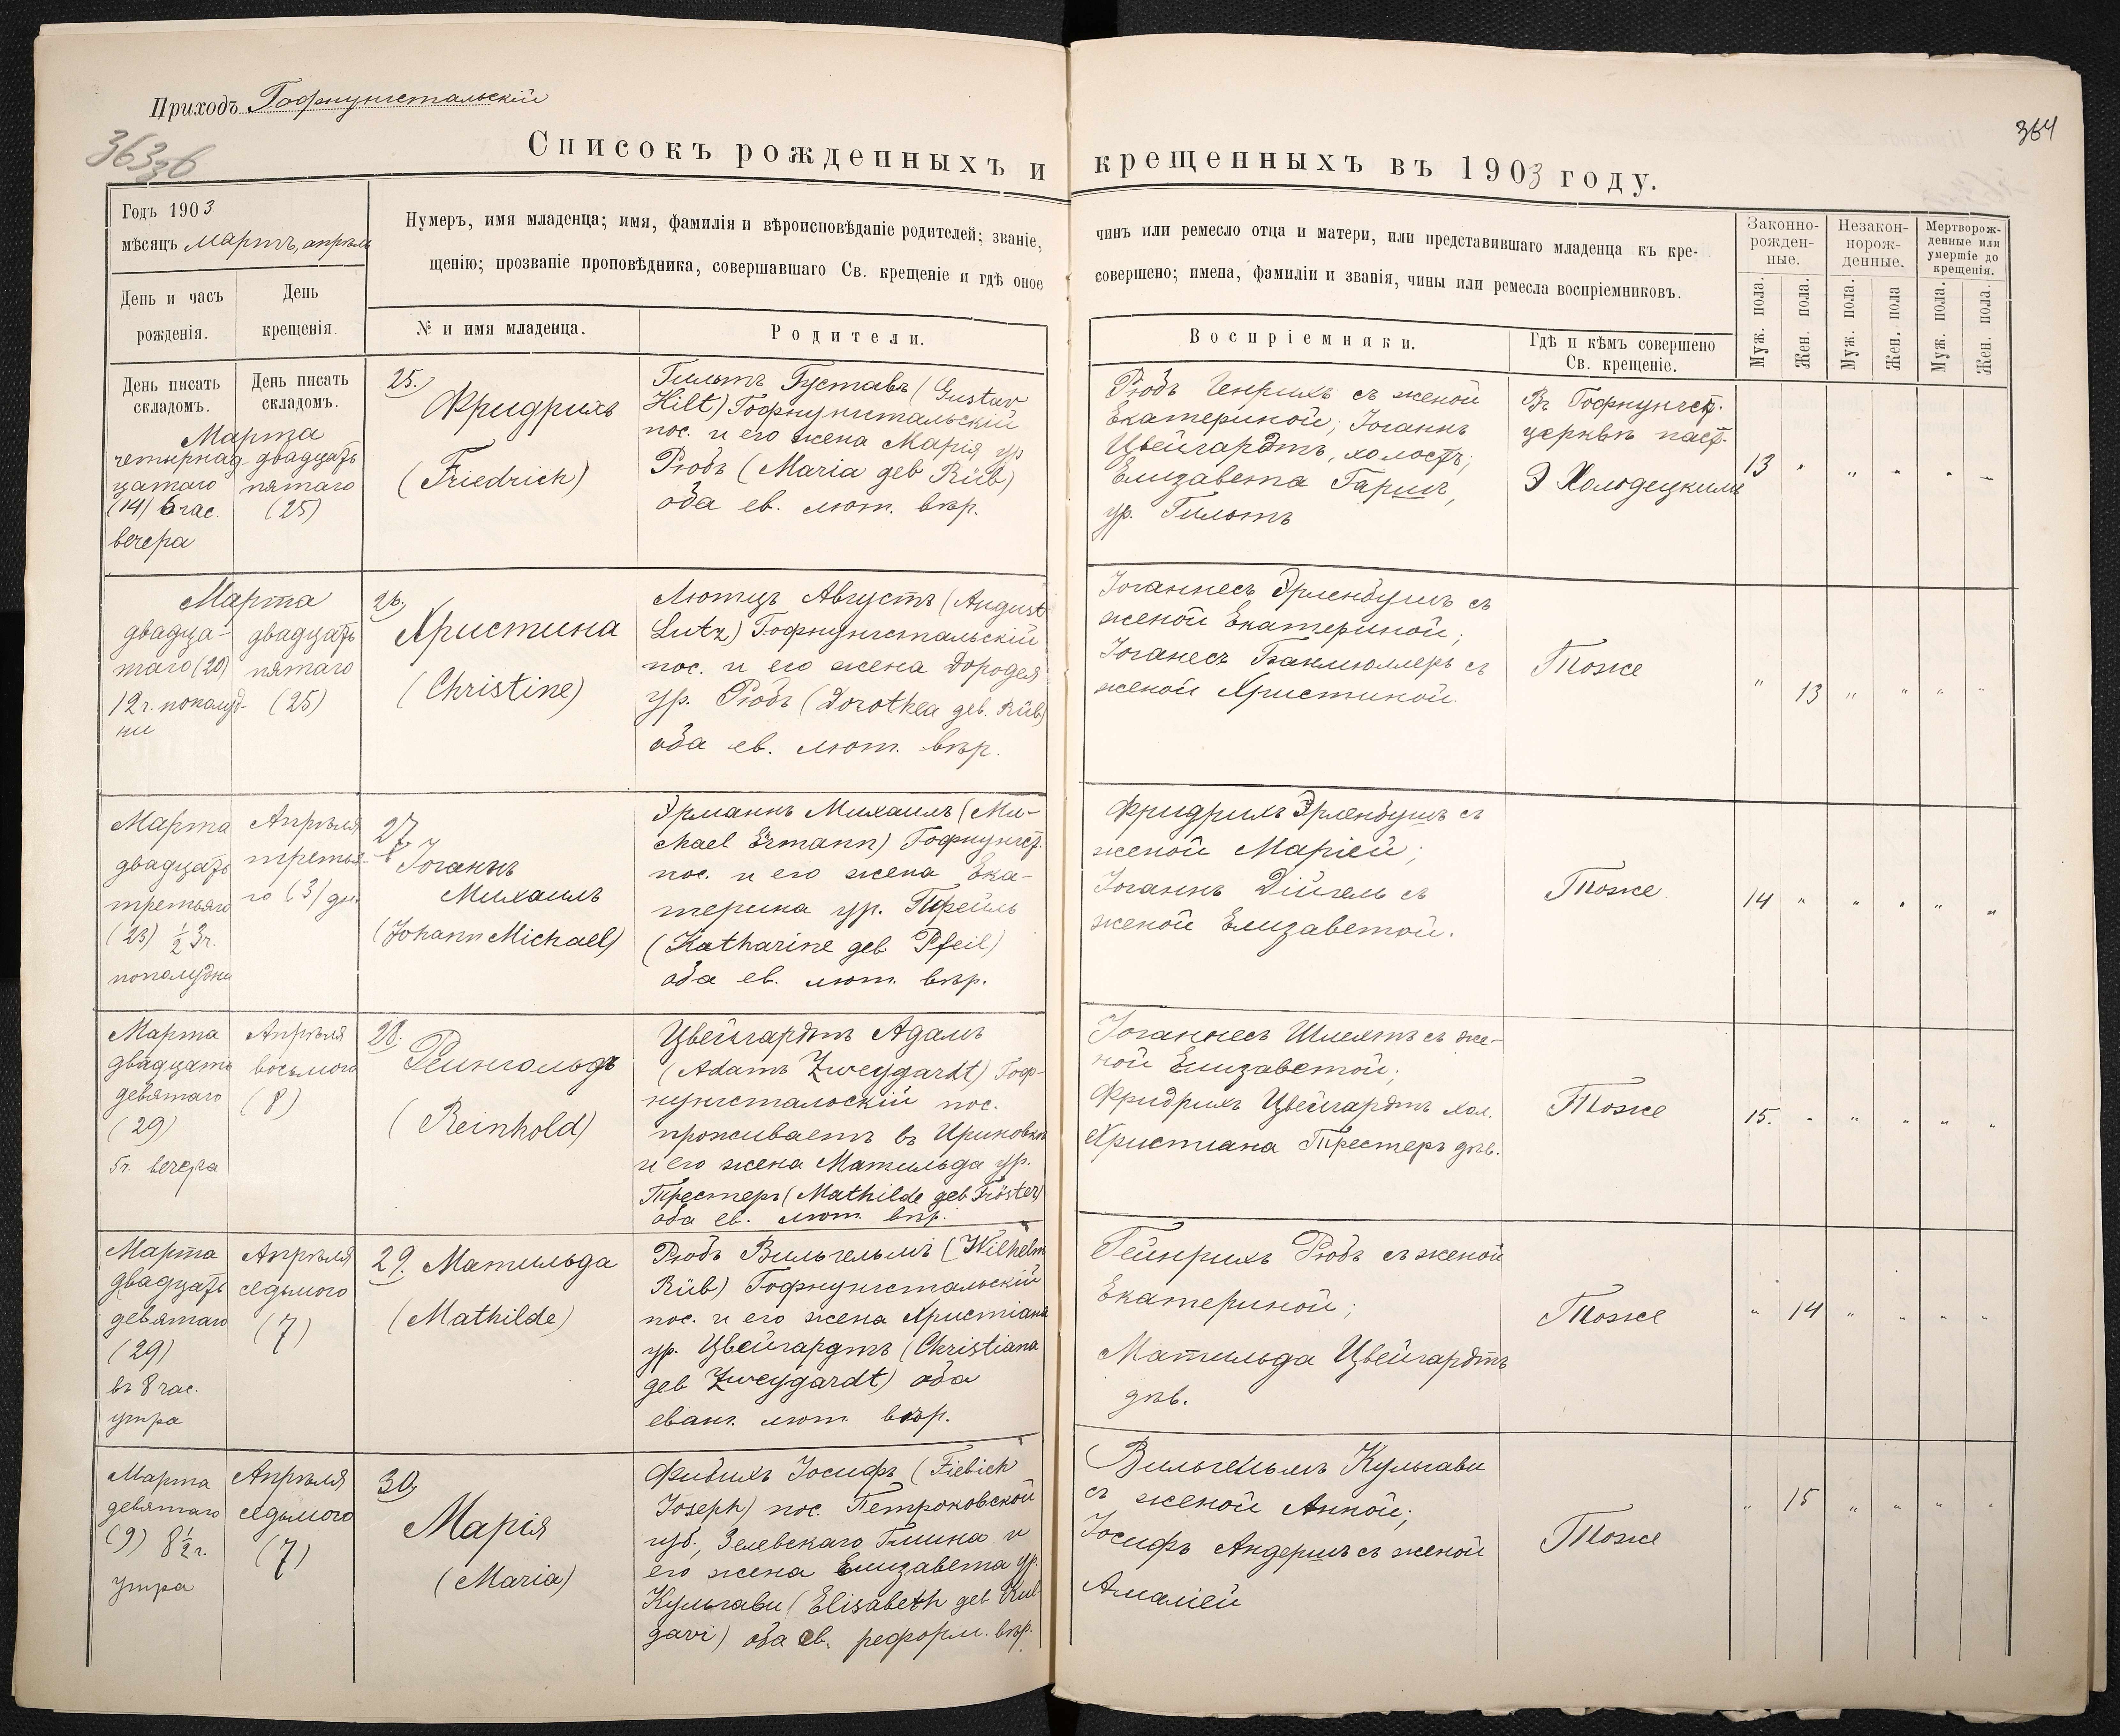 Приходъ Гофнунгстальскій
363
36
364
Списокъ рожденныхъ и крещенныхъ въ 1903 году.
Годъ 1903
мѣсяцъ Мартъ, апрѣль
Нумеръ, имя младенца; имя, фамилія и вѣроисповѣданіе родителей; званіе, чинъ или ремесло отца и матери, или представившаго младенца къ кре-
щенію; прозваніе проповѣдника, совершавшаго Св. крещеніе и гдѣ оное совершено; имена, фамиліи и званія, чины или ремесла воспріемниковъ.
Законно-
рожден-
ные.
Незакон-
норож-
денные.
Мертворож-
денные или
умершіе до
крещенія.
День и часъ
рожденія.
День
крещенія.
№ и имя младенца.
Родители.
Воспріемники.
Гдѣ и кѣмъ совершено
Св. крещеніе.
Муж. пола.
Жен. пола.
Муж. пола.
Жен. пола
Муж. пола.
Жен. пола.
День писать
складомъ.
День писать
складомъ.
Марта
четырнад-
цатаго
(14) 6 час.
вечера
двадцать
пятаго
(25)
25.
Фридрихъ
(Friedrich)
Гильтъ Густавъ (Gustav
Hilt) Гофнунгстальскій
пос. и его жена Марія ур
Рюбъ (Maria geb Rüb)
оба ев. лют. вѣр.
Рюбъ Генрихъ съ женой
Екатериной; Іоганнъ
Цвейгардтъ, холостъ;
Елизавета Гариг,
ур. Гильтъ
Въ Гофнунгст.
церкви паст.
Э Холодецкимъ
13 " " " " "
Марта
двадца-
таго (20)
12 ч. полуд-
ни
двадцать
пятаго
(25)
26.
Христина
(Christine)
Лютцъ Августъ (August
Lutz) Гофнунгстальскій
пос. и его жена Доротея
ур. Рюбъ (Dorothea geb. Rüb)
оба ев. лют. вѣр.
Іоганнесъ Эрленбушъ съ
женой Екатериной;
Іоганесъ Бакмюллеръ съ
женой Христиной.
Тоже
" 13 " " " "
Марта
двадцать
третьяго
(23) ½ 3 ч.
пополудни
Апрѣля
третья-
го (3) дн.
27
Іоганнъ
Михаилъ
(Johann Michael)
Эрманнъ Михаилъ (Mi-
chael Ermann) Гофнунгст.
пос. и его жена Ека-
терина ур. Пфейль
(Katharine geb Pfeil)
оба ев. лют. вѣр.
Фридрихъ Эрленбушъ съ
женой Маріей;
Іоганнъ Дійгель съ
женой Елизаветой.
Тоже
14 " " " " "
Марта
двадцать
девятаго
(29)
5 ч. вечера
Апрѣля
восьмого
(8)
28.
Рейнгольдъ
(Reinhold)
Цвейгардтъ Адамъ
(Adam Zweygardt) Гоф-
нунгстальскій пос.
проживаетъ въ
и его жена Матильда ур.
Трестеръ (Mathilde geb Tröster)
оба ев. лют. вѣр.
Іоганнесъ Шлехтъ съ же-
ной Елизаветой;
Фридрихъ Цвейгардтъ хол.
Христиана Трестеръ дѣв.
Тоже
15. " " " " "
Марта
двадцать
девятаго
(29)
въ 8 час.
утра
Апрѣля
седьмого
(7)
29. Матильда
(Mathilde)
Рюбъ Вильгельмъ (Wilhelm
Rüb) Гофнунгстальскій
пос. и его жена Христіана
ур. Цвейгардтъ (Christiana
geb Zweygardt) оба
еванг. лют. вѣр.
Гейнрихъ Рюбъ съ женой
Екатериной;
Матильда Цвейгардтъ
дѣв.
Тоже
" 14 " " " "
Марта
девятаго
(9) 8½ ч.
утра
Апрѣля
седьмого
(7)
30.
Марія
(Maria)
Фибихъ Іосифъ (Fiebich
Joseph) пос. Петроковской
губ., Зелевскаго Гмина и
его жена Елизавета ур.
Кульгави (Elisabeth geb Kul-
gavi) оба ев. реформ. вѣр.
Вильгельмъ Кульгави
съ женой Анной;
Іосифъ Андершъ съ женой
Амаліей
Тоже
" 15 " " " "